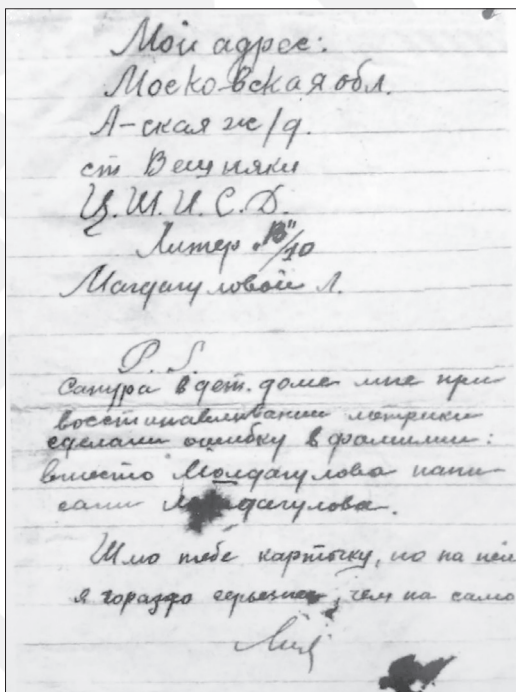 Мой адрес:
Московская обл.
А-ская ж/д.
ст Вешняки
Ц.Ш.И.С.Д.
Литер "В"/10
Магдагуловой Л.
P.S.
Сапура в дет. доме мне при
восстанавливании метрики
сделали ошибку в фамилии:
вместо Молдагулова напи
сали дагулова.
Шлю тебе карточку, но на ней
я гораздо серьезнее, чем на само
Лия